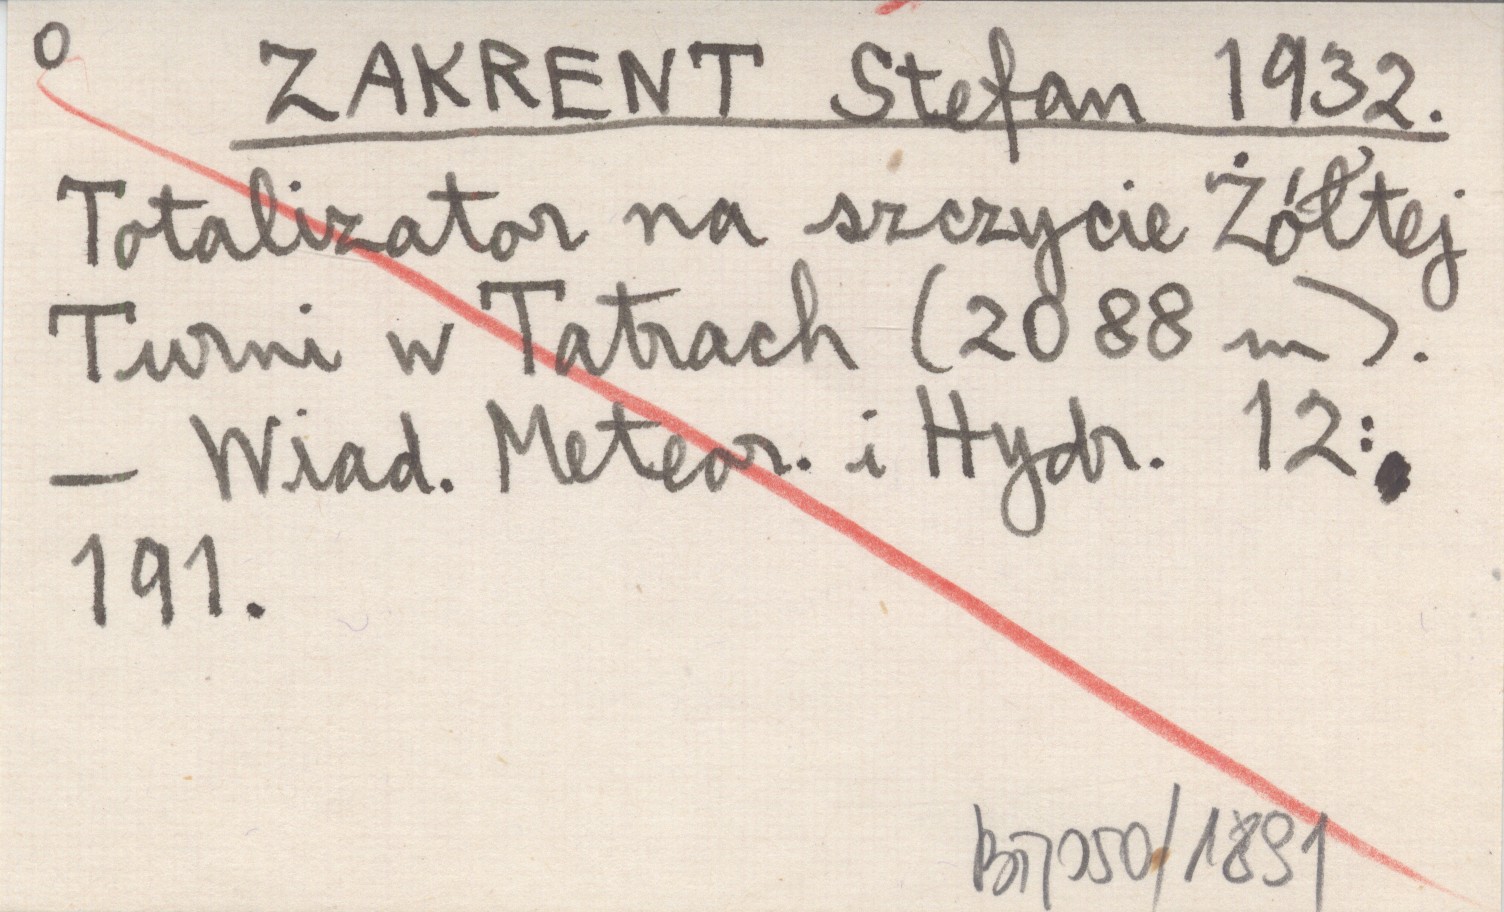 O
ZAKRENT Stefan 1932.
Totalizator na szczycie Żółtej
Turni w Tatrach (2088 m).
— Wiad. Meteor. i Hydr. 12:
191.
/1891